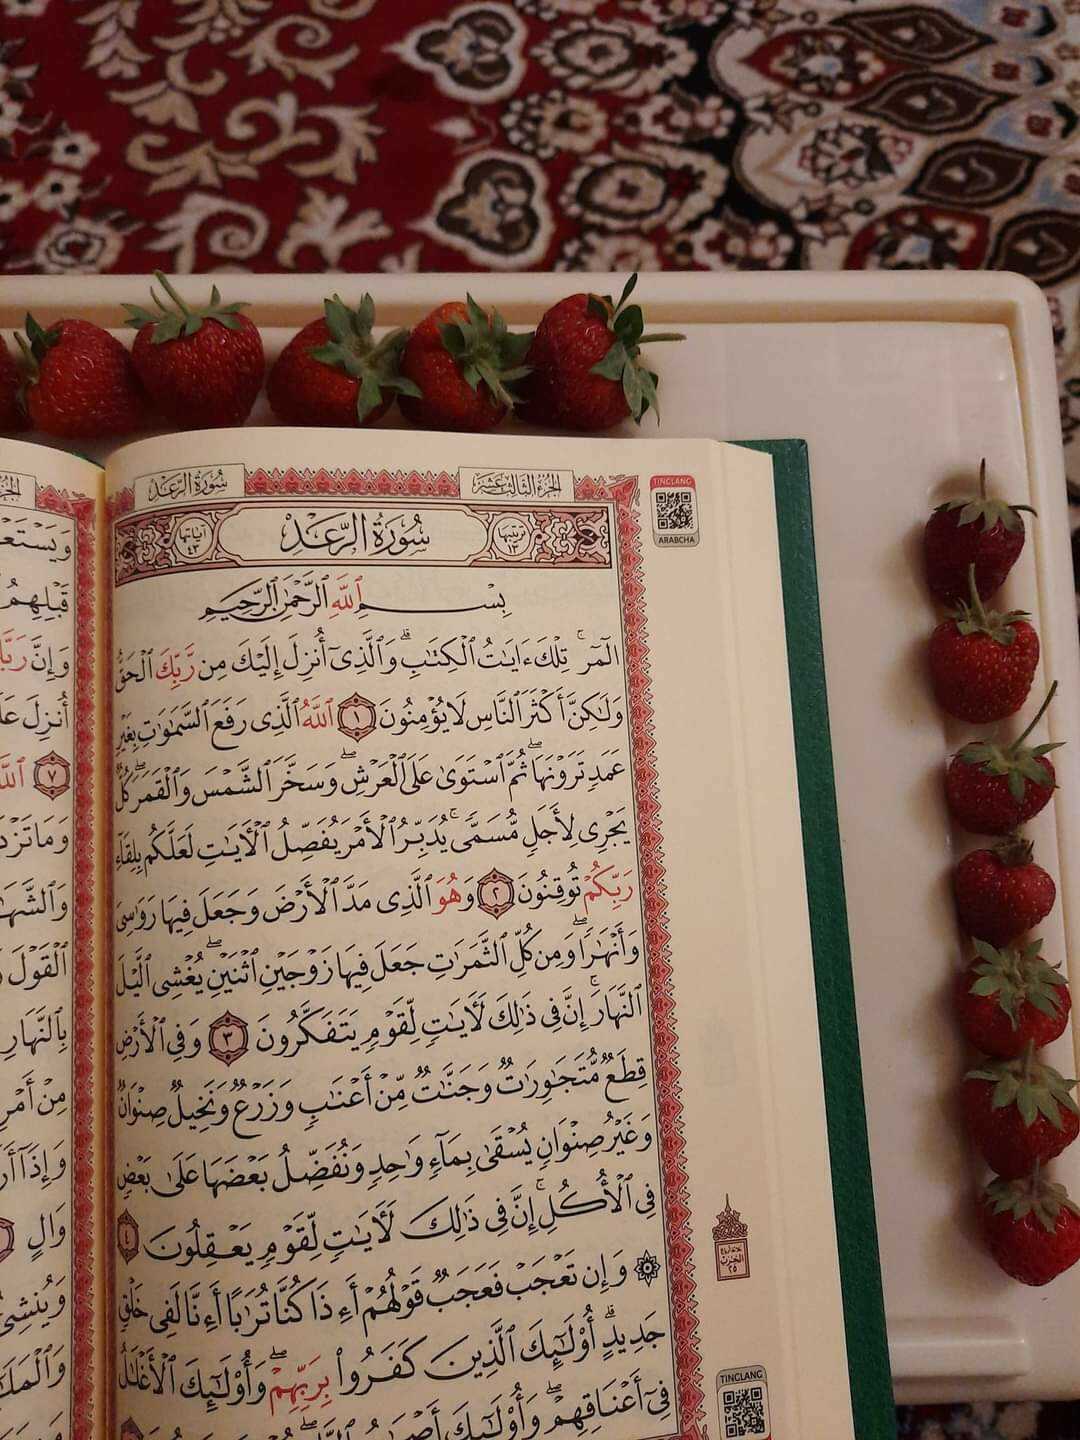 سُورَةُ الرَّعْدِ
الجُزْءُ الثَّالِثَ عَشَرَ
TINCLANG
ARABCHA
ترتيبها ١٣
سُورَةُ الرَّعْدِ
آياتها ٤٣
بِسْمِ ٱللَّهِ ٱلرَّحْمَٰنِ ٱلرَّحِيمِ
الٓمٓرۚ تِلْكَ ءَايَٰتُ ٱلْكِتَٰبِۗ وَٱلَّذِىٓ أُنزِلَ إِلَيْكَ مِن رَّبِّكَ ٱلْحَقُّ
وَلَٰكِنَّ أَكْثَرَ ٱلنَّاسِ لَا يُؤْمِنُونَ ١ ٱللَّهُ ٱلَّذِى رَفَعَ ٱلسَّمَٰوَٰتِ بِغَيْرِ
عَمَدٍ تَرَوْنَهَاۖ ثُمَّ ٱسْتَوَىٰ عَلَى ٱلْعَرْشِۖ وَسَخَّرَ ٱلشَّمْسَ وَٱلْقَمَرَۖ كُلٌّ
يَجْرِى لِأَجَلٍ مُّسَمًّىۚ يُدَبِّرُ ٱلْأَمْرَ يُفَصِّلُ ٱلْءَايَٰتِ لَعَلَّكُم بِلِقَآءِ
رَبِّكُمْ تُوقِنُونَ ٢ وَهُوَ ٱلَّذِى مَدَّ ٱلْأَرْضَ وَجَعَلَ فِيهَا رَوَٰسِىَ
وَأَنْهَٰرًاۖ وَمِن كُلِّ ٱلثَّمَرَٰتِ جَعَلَ فِيهَا زَوْجَيْنِ ٱثْنَيْنِۖ يُغْشِى ٱلَّيْلَ
ٱلنَّهَارَۚ إِنَّ فِى ذَٰلِكَ لَءَايَٰتٍ لِّقَوْمٍ يَتَفَكَّرُونَ ٣ وَفِى ٱلْأَرْضِ
قِطَعٌ مُّتَجَٰوِرَٰتٌ وَجَنَّٰتٌ مِّنْ أَعْنَٰبٍ وَزَرْعٌ وَنَخِيلٌ صِنْوَانٌ
وَغَيْرُ صِنْوَانٍ يُسْقَىٰ بِمَآءٍ وَٰحِدٍ وَنُفَضِّلُ بَعْضَهَا عَلَىٰ بَعْضٍ
فِى ٱلْأُكُلِۚ إِنَّ فِى ذَٰلِكَ لَءَايَٰتٍ لِّقَوْمٍ يَعْقِلُونَ ٤
۞ وَإِن تَعْجَبْ فَعَجَبٌ قَوْلُهُمْ أَءِذَا كُنَّا تُرَٰبًا أَءِنَّا لَفِى خَلْقٍ
جَدِيدٍۗ أُو۟لَٰٓئِكَ ٱلَّذِينَ كَفَرُوا۟ بِرَبِّهِمْۖ وَأُو۟لَٰٓئِكَ ٱلْأَغْلَٰلُ
فِىٓ أَعْنَاقِهِمْۖ وَأُو۟لَٰٓئِكَ
الحزب
٢٥
TINCLANG
وَيَسْتَعْ
قَبْلِهِمُ
وَإِنَّ رَبَّ
أُنزِلَ عَلَ
٧ ٱللَّ
وَمَا تَزْدَ
وَٱلشَّهَٰ
ٱلْقَوْلَ
بِٱلنَّهَارِ
مِنْ أَمْرِ
وَإِذَآ أَرَ
وَالٍ
وَيُنشِئُ
وَٱلْمَلَٰ